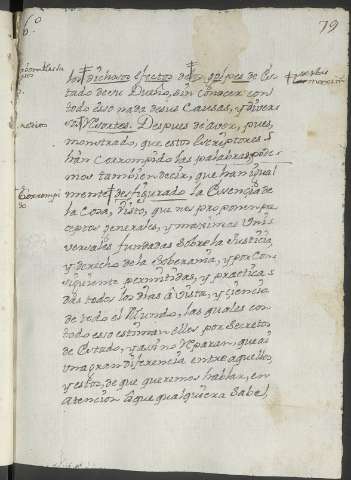 6.º
79
los dichosos efectos de los golpes de Es-
tado de su Dueño, sin conocer con
todo esso nada de sus Causas, y divers
os Resortes. Despues de aver, pues,
monstrado, que estos Escriptores
han Corrompido las palabras, pode-
mos tambien decir, que han igual
mente desfigurado la Essencia de
la Cosa, visto, que nos proponen pre
ceptos generales, y maximas Vni-
versales fundadas sobre la Justicia
y derecho de la Soberania, y por con
siguiente permitidas, y practica
das todos los dias à vista, y ciencia
de todo el Mundo, las quales con
todo esso estiman ellos por Secretos
de Estado, y assi no reparan, que ai
una gran diferencia entre aquellos,
y estos, de que queremos hablar, en
atencion à que qualquiera Sabe
Corrompi
do